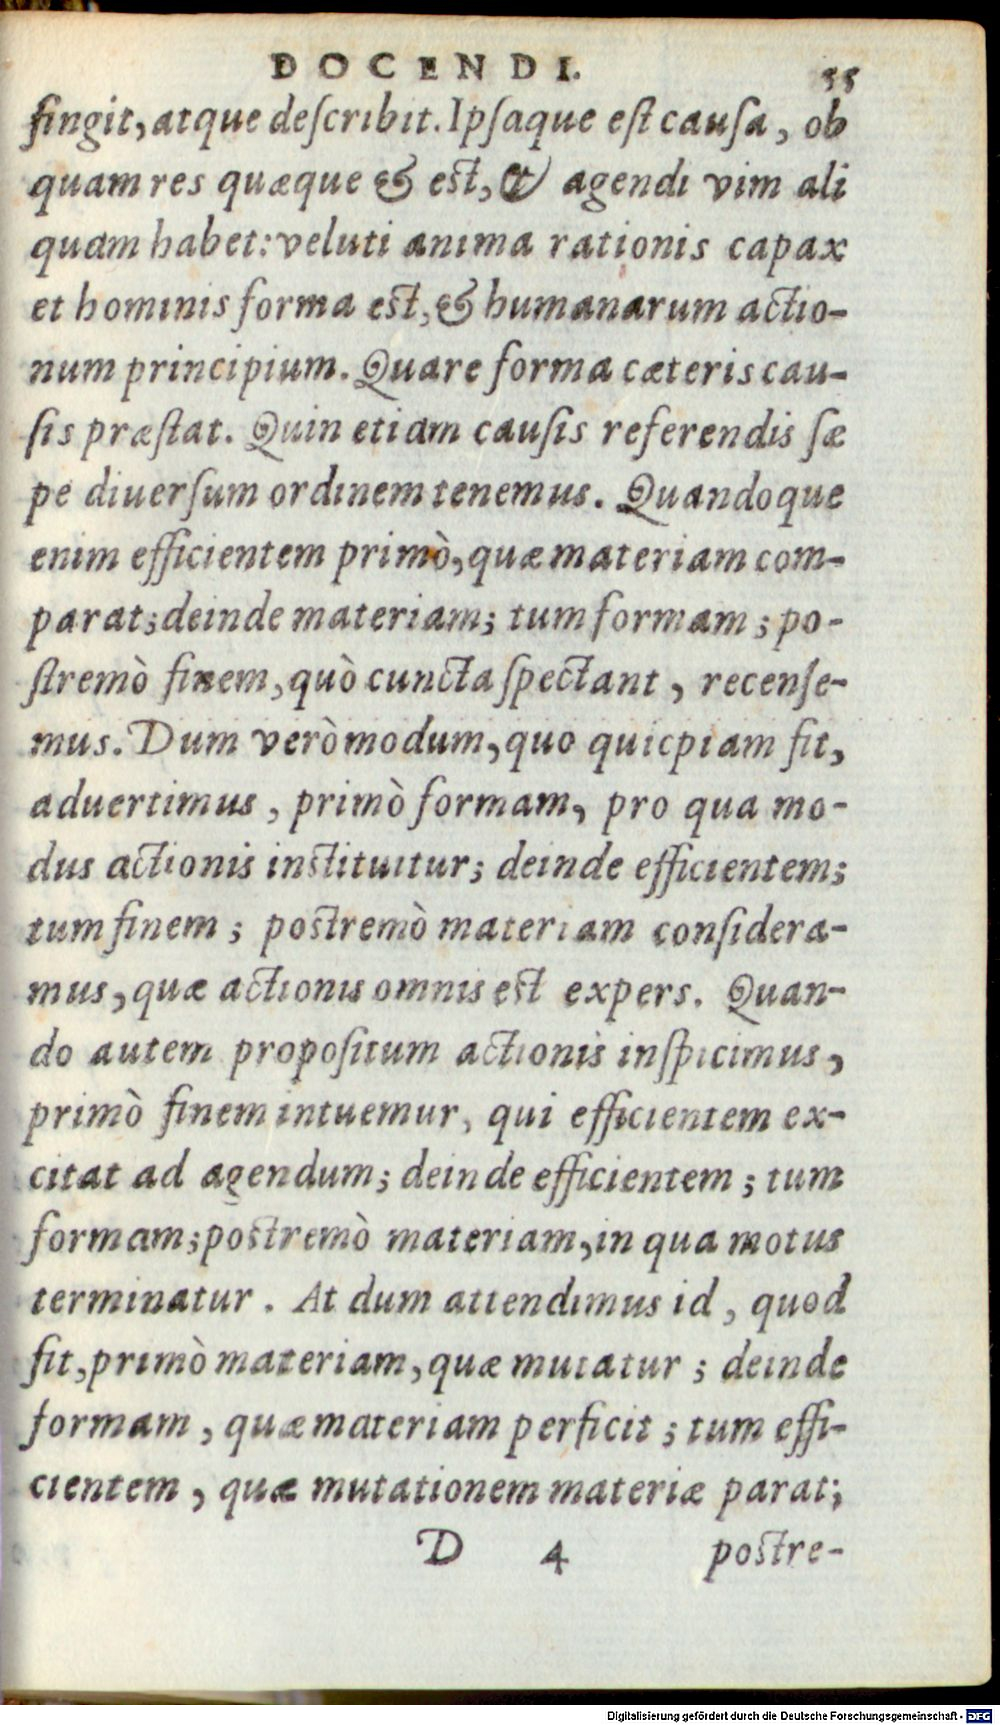 DOCENDI. 55
fingit, atque deſcribit. Ipſaque eſt cauſa, ob
quam res quæque & est, & agendi vim ali
quam habet: veluti anima rationis capax
et hominis forma est, & humanarum actio-
num principium. Quare forma cæteris cau-
ſis præſtat. Quin etiam cauſis referendis ſæ
pe diuerſum ordinem tenemus. Quandoque
enim efficientem primò, quæ materiam com-
parat; deinde materiam; tum formam; po-
ſtremò finem, quò cuncta ſpectant, recenſe-
mus. Dum verò modum, quo quicpiam fit,
aduertimus, primò formam, pro qua mo-
dus actionis instituitur; deinde efficientem;
tum finem; postremò materiam conſidera-
mus, quæ actionis omnis est expers. Quan-
do autem propoſitum actionis inſpicimus,
primò finem intuemur, qui efficientem ex-
citat ad agendum; deinde efficientem; tum
formam; postremò materiam, in qua motus
terminatur. At dum attendimus id, quod
fit, primò materiam, quæ mutatur; deinde
formam, quæ materiam perficit; tum effi-
cientem, quæ mutationem materiæ parat;
D 4 postre-
Digitalisierung gefördert durch die Deutsche Forschungsgemeinschaft - DFG